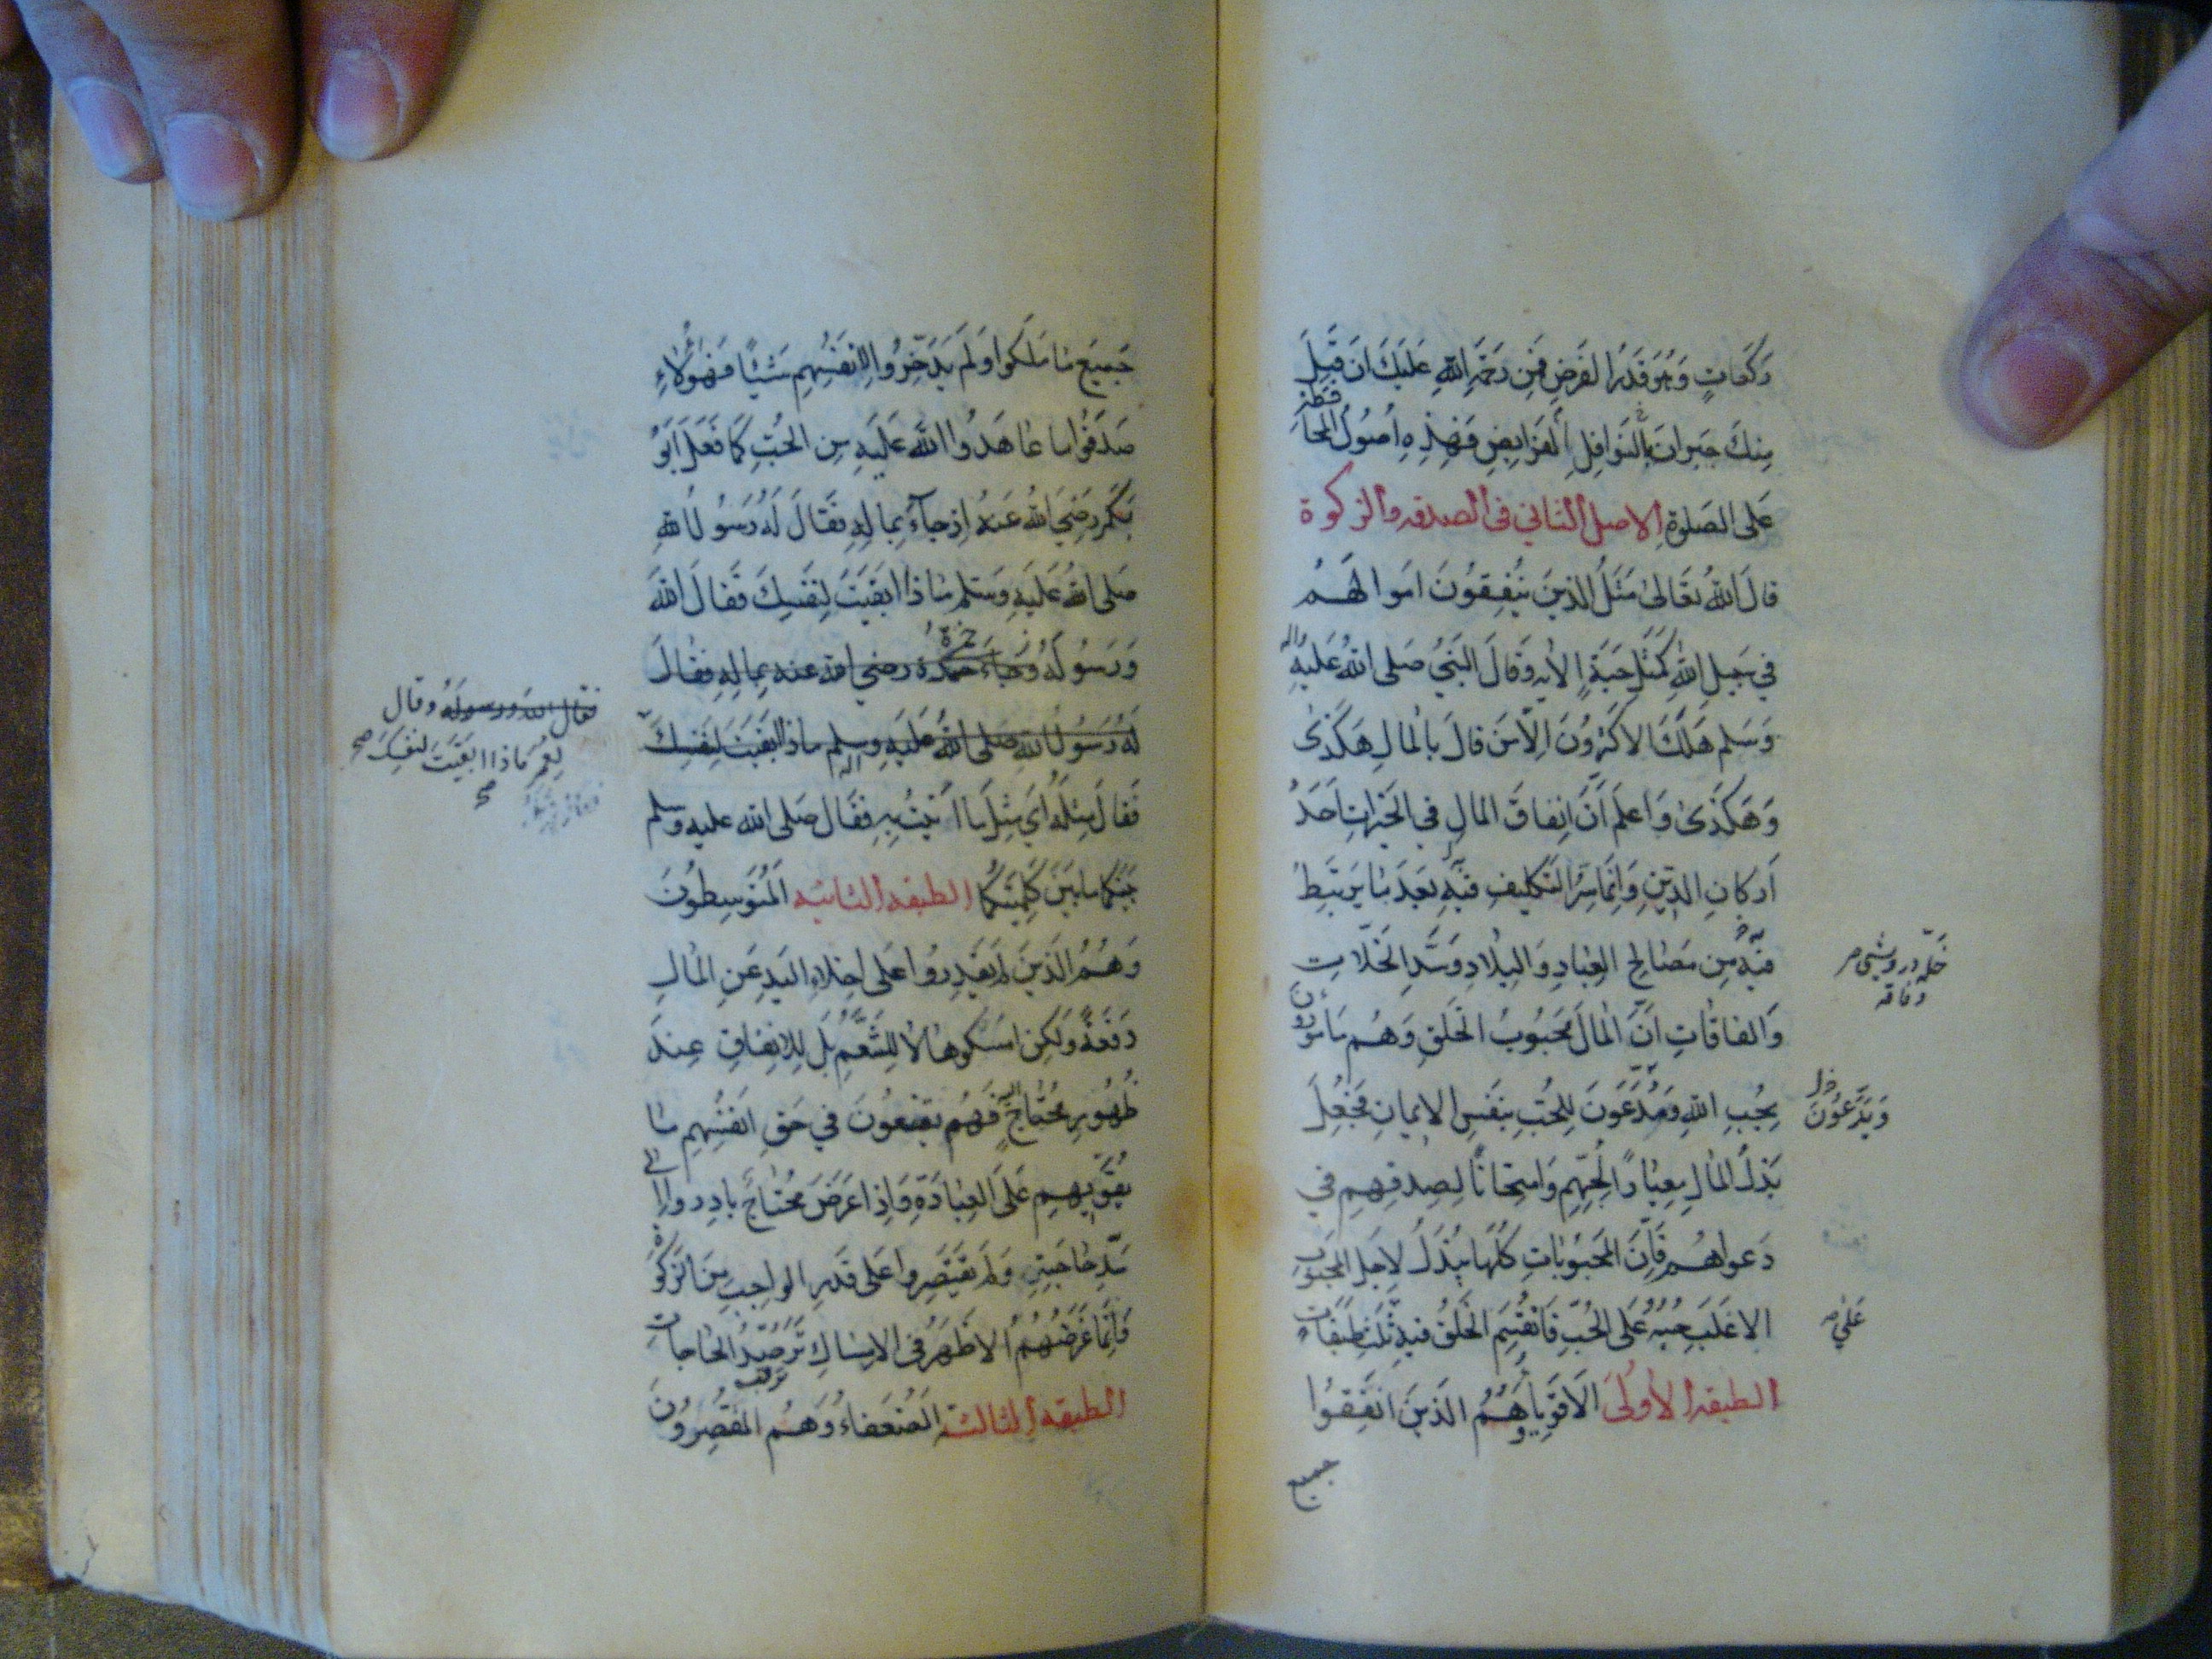 رَكَعَاتٍ وَهُوَ قَدْرُ الفَرضِ فَمِن رَحْمَةِ اللهِ عَلَيكَ اَن قَبِلَ
مِنكَ جبرانَ بالنَوافِلِ الفرايضِ فَهذِهِ اُصُولُ المحافظة
عَلى الصَلوةِ الاصل الثانى فى الصدقه والزكوة
قالَ اللهُ تَعَالى مَثَلُ الذينَ يُنفِقُونَ اموالَهُم
في سَبيلِ اللهِ كَمَثَلِ حَبَةٍ الاية وَقَالَ النَبيُ صَلى اللهُ عَليهِ واله
وَسَلم هَلَكَ الاكثَرُونَ اِلّا مَن قالَ بالمالِ هَكَذى
وَهَكَذى وَاعلَم اَنَّ اِنفاقَ المالِ في الخَيراتِ اَحَدُ
اَركانِ الدينِ وَاِنَّما سِرُ التَكليفِ فيهِ بَعدَ مَا يَرتَبِطُ
فيهِ مِن مَصَالحِ العِبادِ وَالبِلادِ وَسَدِّ الخَلّاتِ
خلّه درويشى
وفاقه
وَالفاقاتِ اَنَّ المالَ محَبُوبُ الخَلقِ وَهُم مَامورُونَ
بِحُبِ اللهِ وَمُدَّعَونَ لِلحُبِ بِنَفسِ الايمانِ فَجُعِلَ
وَيَدَّعُونَ خل
بَذلُ المالِ مِعيَارًا لِحُبِّهِم وَامتِحانًا لِصِدقِهِم في
دَعواهُم فَاِنَّ المَحبُوبَاتِ كُلَّها يُبذَلُ لِاَجلِ المَحبُوبِ
الاغلَبِ حُبُهُ عَلَى الحُبِّ فَانقَسَمَ الخَلقُ فيهِ ثَلثَ طَبَقاتٍ
عَلى
الطبقه الاُولىَ الاَقوِياءُ وَهُمُ الذينَ انفَقُوا
جميع
جَميعَ مَا مَلَكُوا وَلَم يَدَّخِرُوا لِاَنفُسِهِم شَيئًا فَهؤُلاءِ
صَدَقُوا ما عَاهَدُوا اللهَ عَلَيهِ مِن الحُبِّ كَما فَعَلَ اَبُو
بَكرٍ رَضِيَ اللهُ عَنهُ اِذ جاءَ بِمالِهِ فَقَالَ لَهُ رَسُولُ اللهِ
صَلى اللهُ عَلَيهِ وَسَلم مَاذا ابقَيتَ لِنَفسِكَ فَقالَ اللهَ
وَرَسُولَهُ وَجَاءَ رضي الله عنه بِمالِهِ فَقالَ
لَهُ رَسُولُ اللهِ صَلى اللهُ عَلَيهِ وسلم ماذا ابقَيتَ لِنَفسِكَ
فقال الله ورسوله وقال
لِعُمَر مَاذا ابقَيتَ لنفسِكَ صح
فَقالَ مِثلَهُ اَي مِثلَ مَا اَتَيتُ بِهِ فَقَال صَلى الله عليه واله وسلم
بَينَكُما ما بَينَ كَلِمَتَيكُما الطبقه الثانيه المُتَوَسِطُونَ
وَهُمُ الَذينَ لَم يَقدِرُوا عَلى اِخلاءِ اليَدِ عَنِ المَالِ
دَفعَةً وَلَكِن امسَكُوها لا لِلتَنَعُّمِ بَل لِلاِنفَاقِ عِندَ
ظُهُورِ محتَاجٍ اليه فَهُم يَقنَعُونَ في حَقِ انفُسِهِم مَا
يُقَوّيهِم عَلَى العِبَادَةِ وَاِذا عَرَضَ محُتاجٌ بادِروا اِلى
سَدِّ حَاجَتِهِ وَلَم يَقتَصِروا عَلى قَدرِ الواجِبِ مِنَ الزَكوةِ
فَاِنَّما غَرَضُهُمُ الاَظهَرُ في الامسَاكِ تَرَصُّدُ الحَاجاتِ
ترقب
الطبقه الثالثة الضُعَفاءُ وَهُمُ المُقَصِّرُونَ